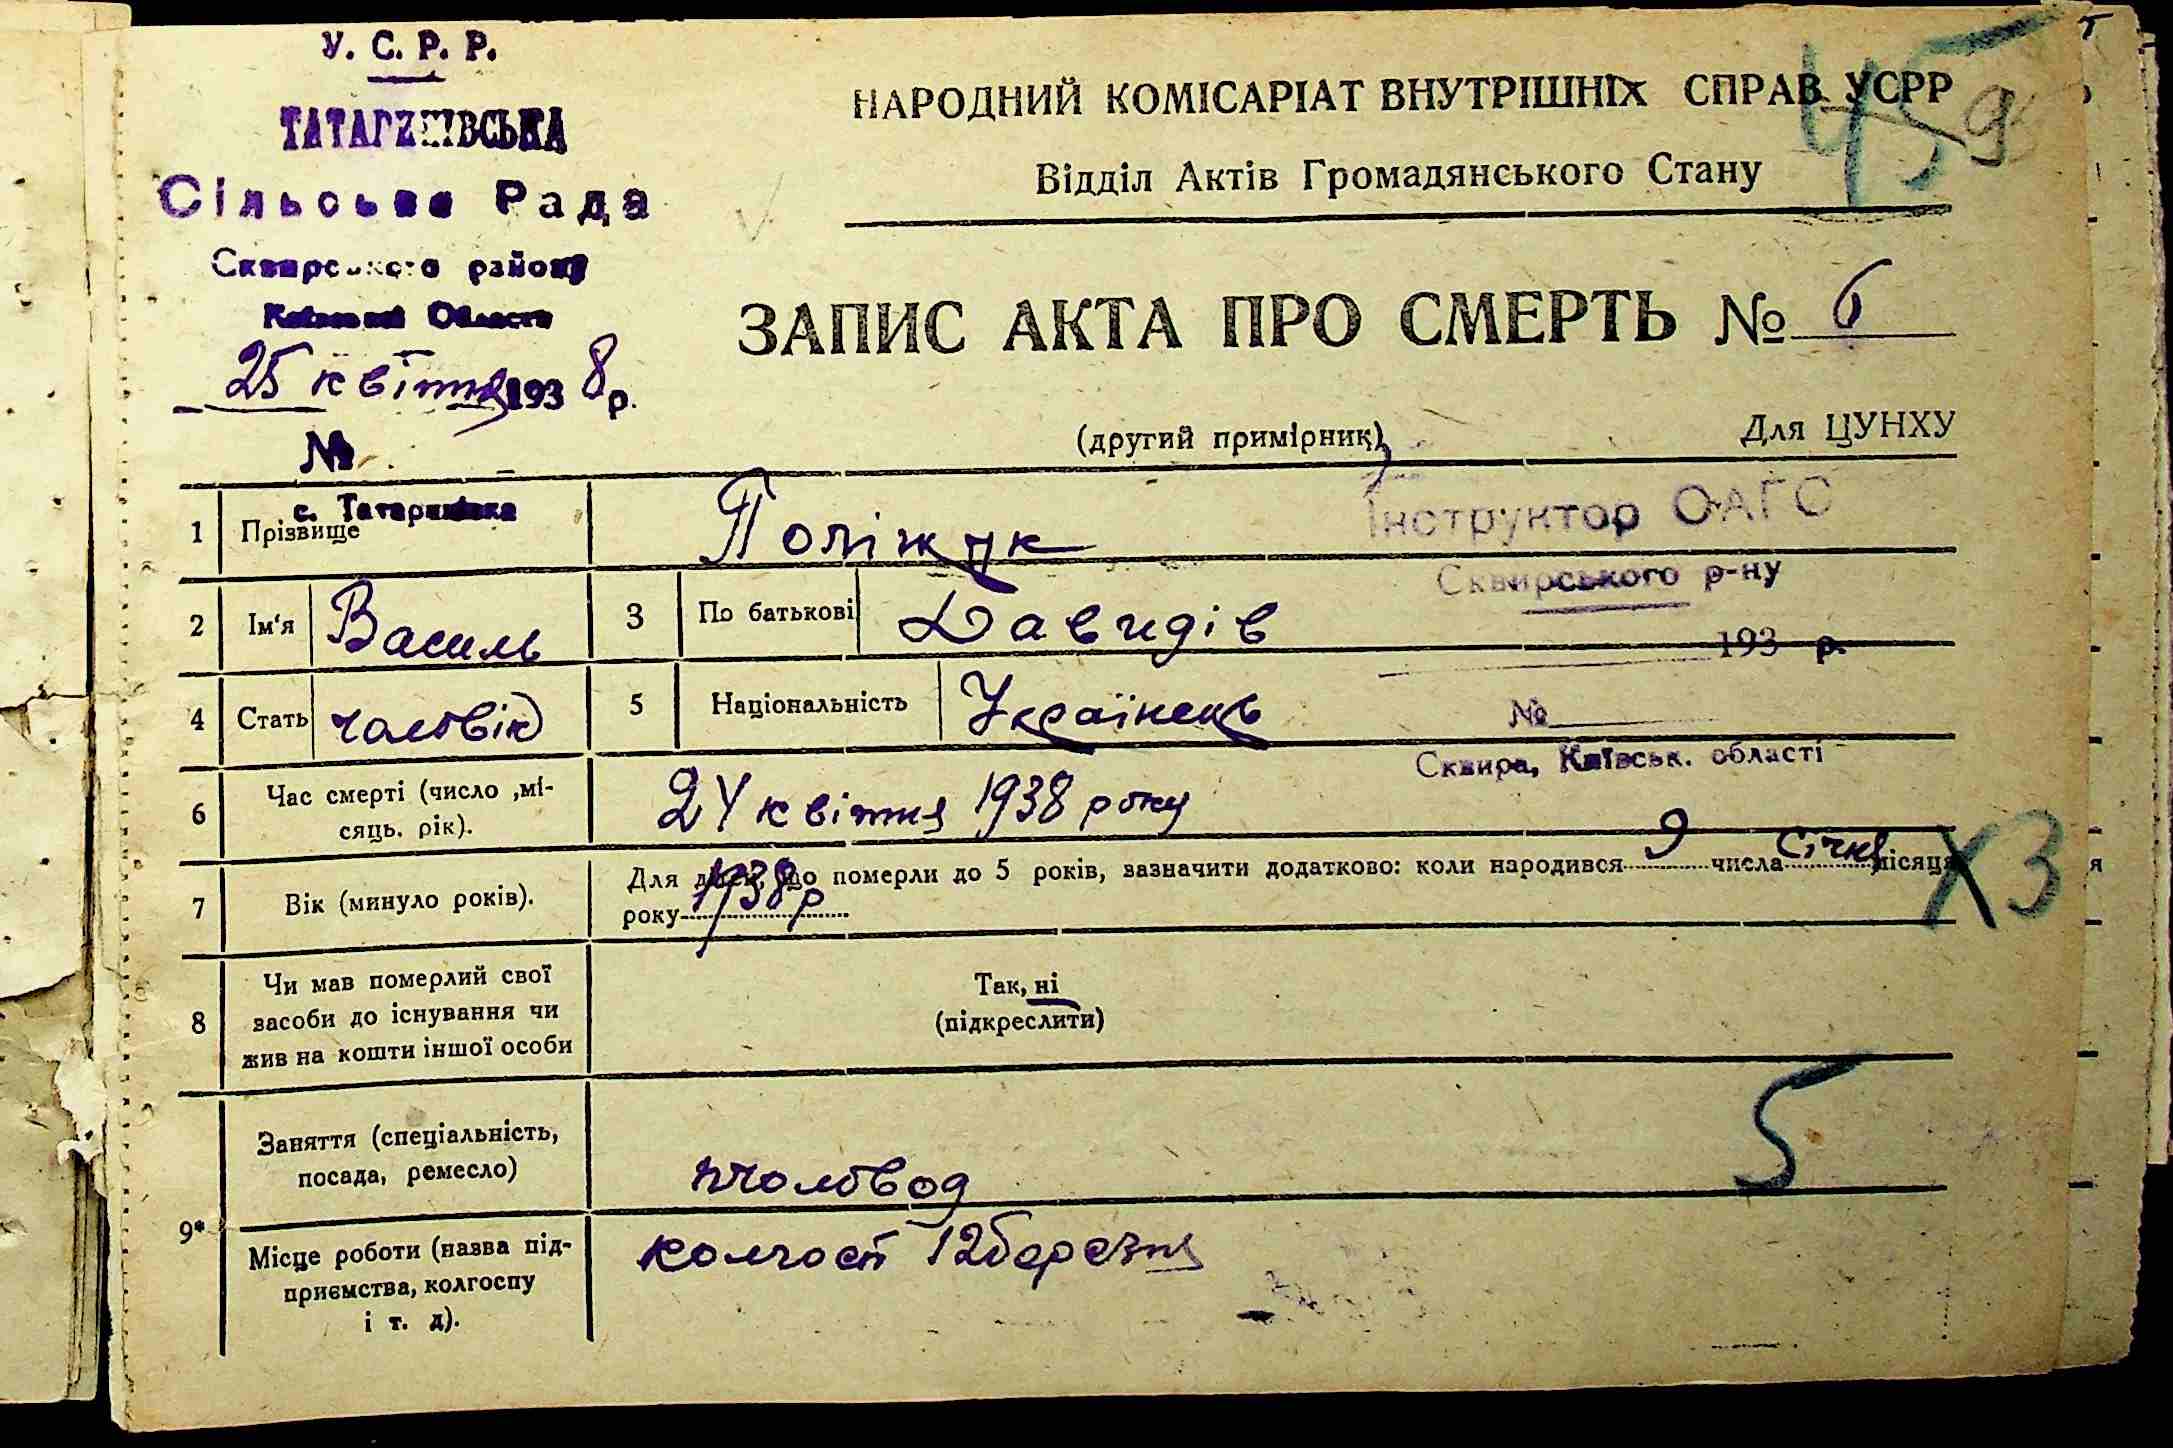 У. С. Р. Р.
ТАТАРИНІВСЬКА
Сільська Рада
Сквирського району
Київської Области
25 квітня 1938 р.
№
с. Татаринівка
НАРОДНИЙ КОМІСАРІАТ ВНУТРІШНІХ СПРАВ УСРР
Відділ Актів Громадянського Стану
45
9
ЗАПИС АКТА ПРО СМЕРТЬ № 6
(другий примірник)
Для ЦУНХУ
Інструктор ОАГС
Сквирського р-ну
193 р.
№
Сквира, Київськ. області
1 Прізвище Поліжук
2 Ім'я Василь 3 По батькові Давидів
4 Стать чоловік 5 Національність Українець
6 Час смерті (число ,мі-
сяць. рік).
24 квітня 1938 року
7 Вік (минуло років).
Для дітей, що померли до 5 років, зазначити додатково: коли народився 9 числа Січня місяця
року 1938 р
Х3
8 Чи мав померлий свої
засоби до існування чи
жив на кошти іншої особи
Так, ні
(підкреслити)
9* Заняття (спеціальність,
посада, ремесло)
пчоловод
5
Місце роботи (назва під-
приємства, колгоспу
і т. д).
колгосп 12 березня